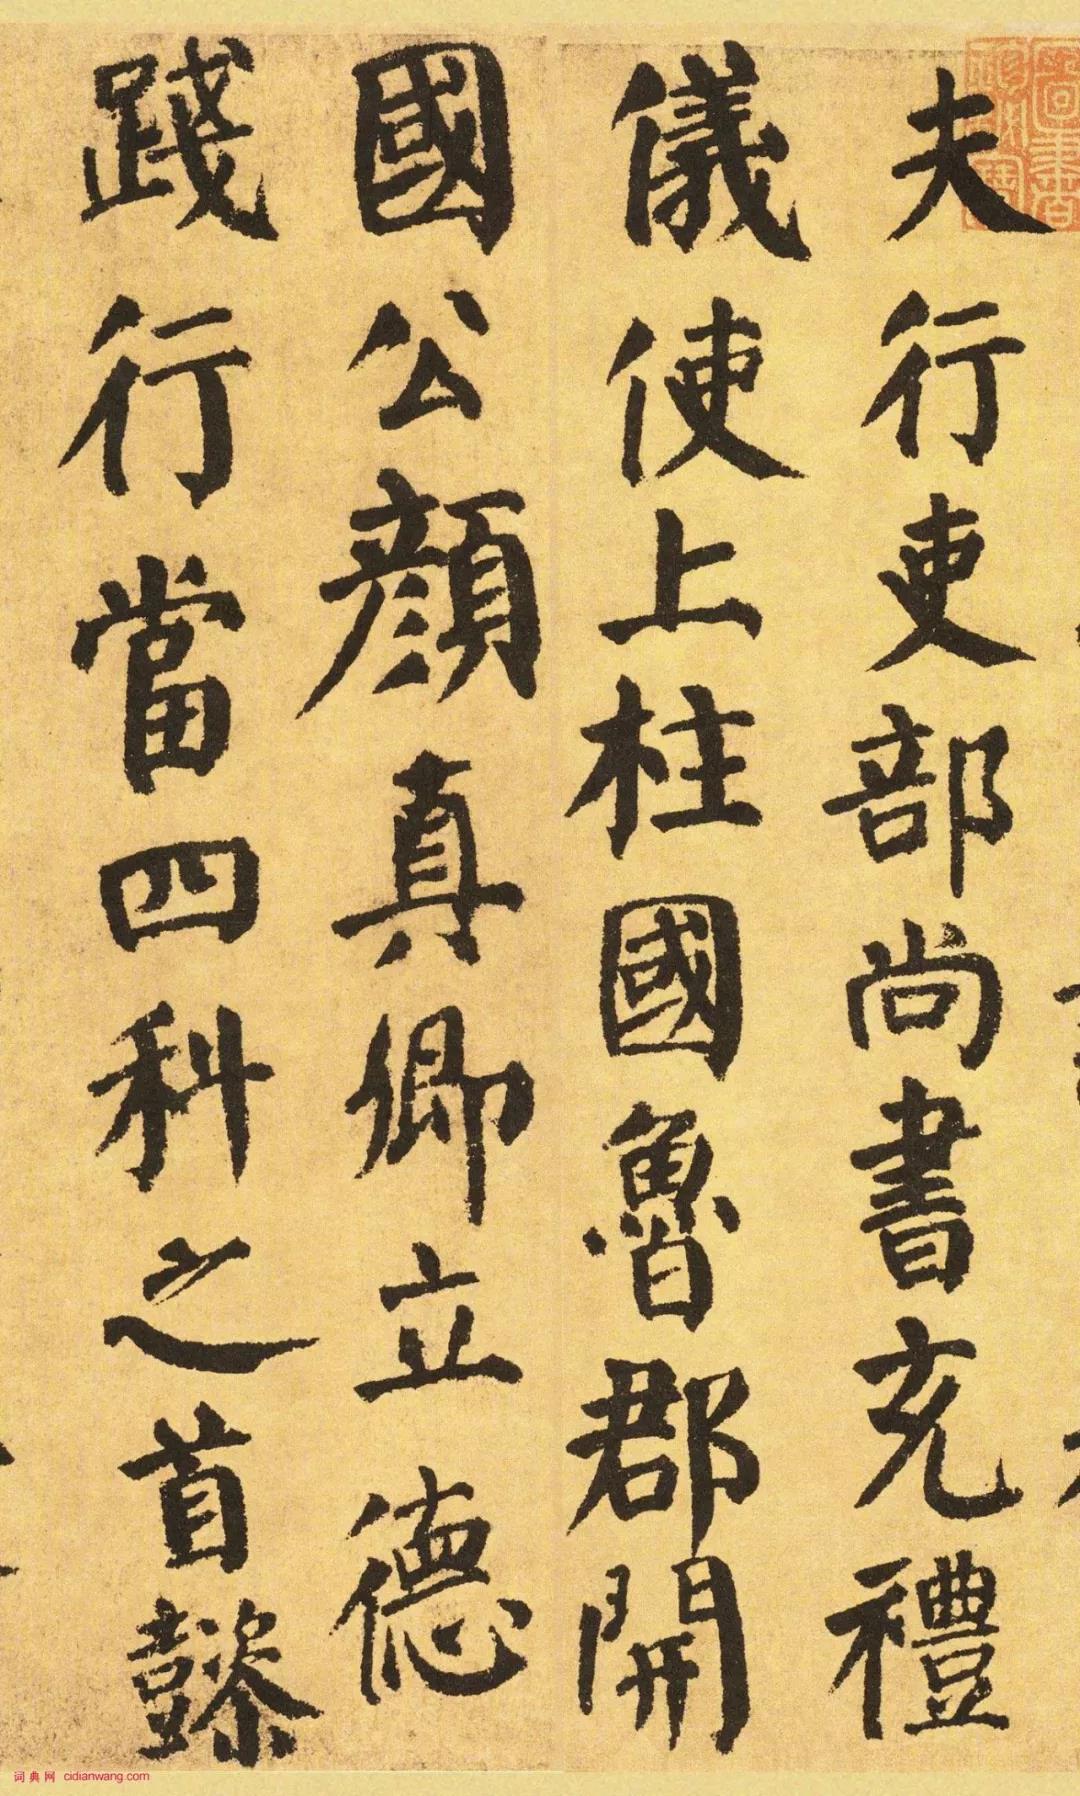 夫行吏部尚書充禮
儀使上柱國魯郡開
國公顏真卿立德
踐行當四科之首懿
词典网 cidianwang.com